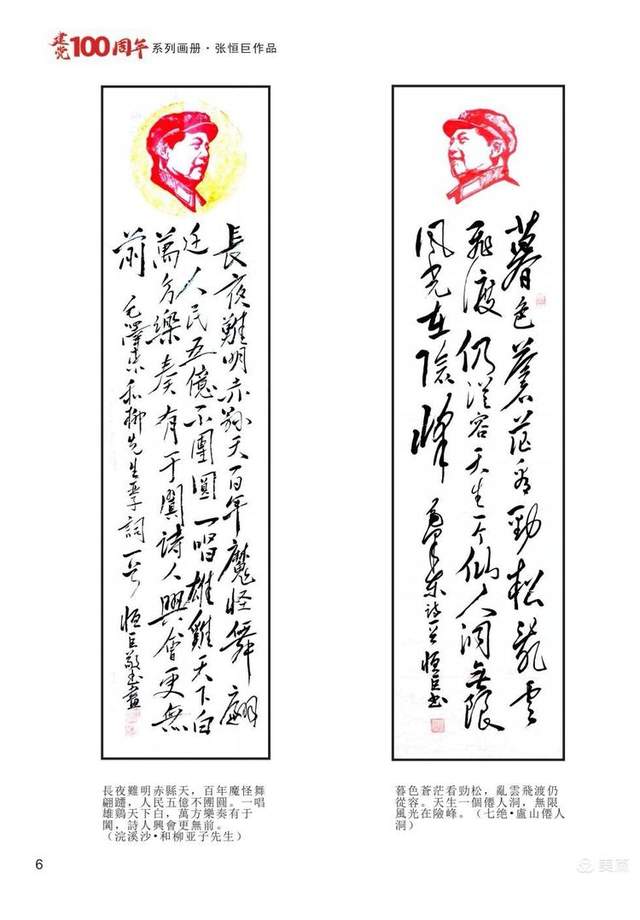 建党100周年 系列画册·张恒巨作品
長夜難明赤縣天百年魔怪舞翩
迁人民五億不團圓一唱雄雞天下白
萬方樂奏有于闐詩人興會更無
前 毛澤東和柳先生 詞一首 恒巨敬書畫
暮色蒼茫看勁松亂雲
飛渡仍從容天生一个仙人洞無限
風光在險峰 毛澤東詩一首 恒巨书
長夜難明赤縣天，百年魔怪舞
翩躚，人民五億不團圓。一唱
雄鷄天下白，萬方樂奏有于
闐，詩人興會更無前。
（浣溪沙·和柳亚子先生）
暮色蒼茫看勁松，亂雲飛渡仍
從容。天生一個僊人洞，無限
風光在險峰。（七绝·盧山僊人
洞）
6
美篇